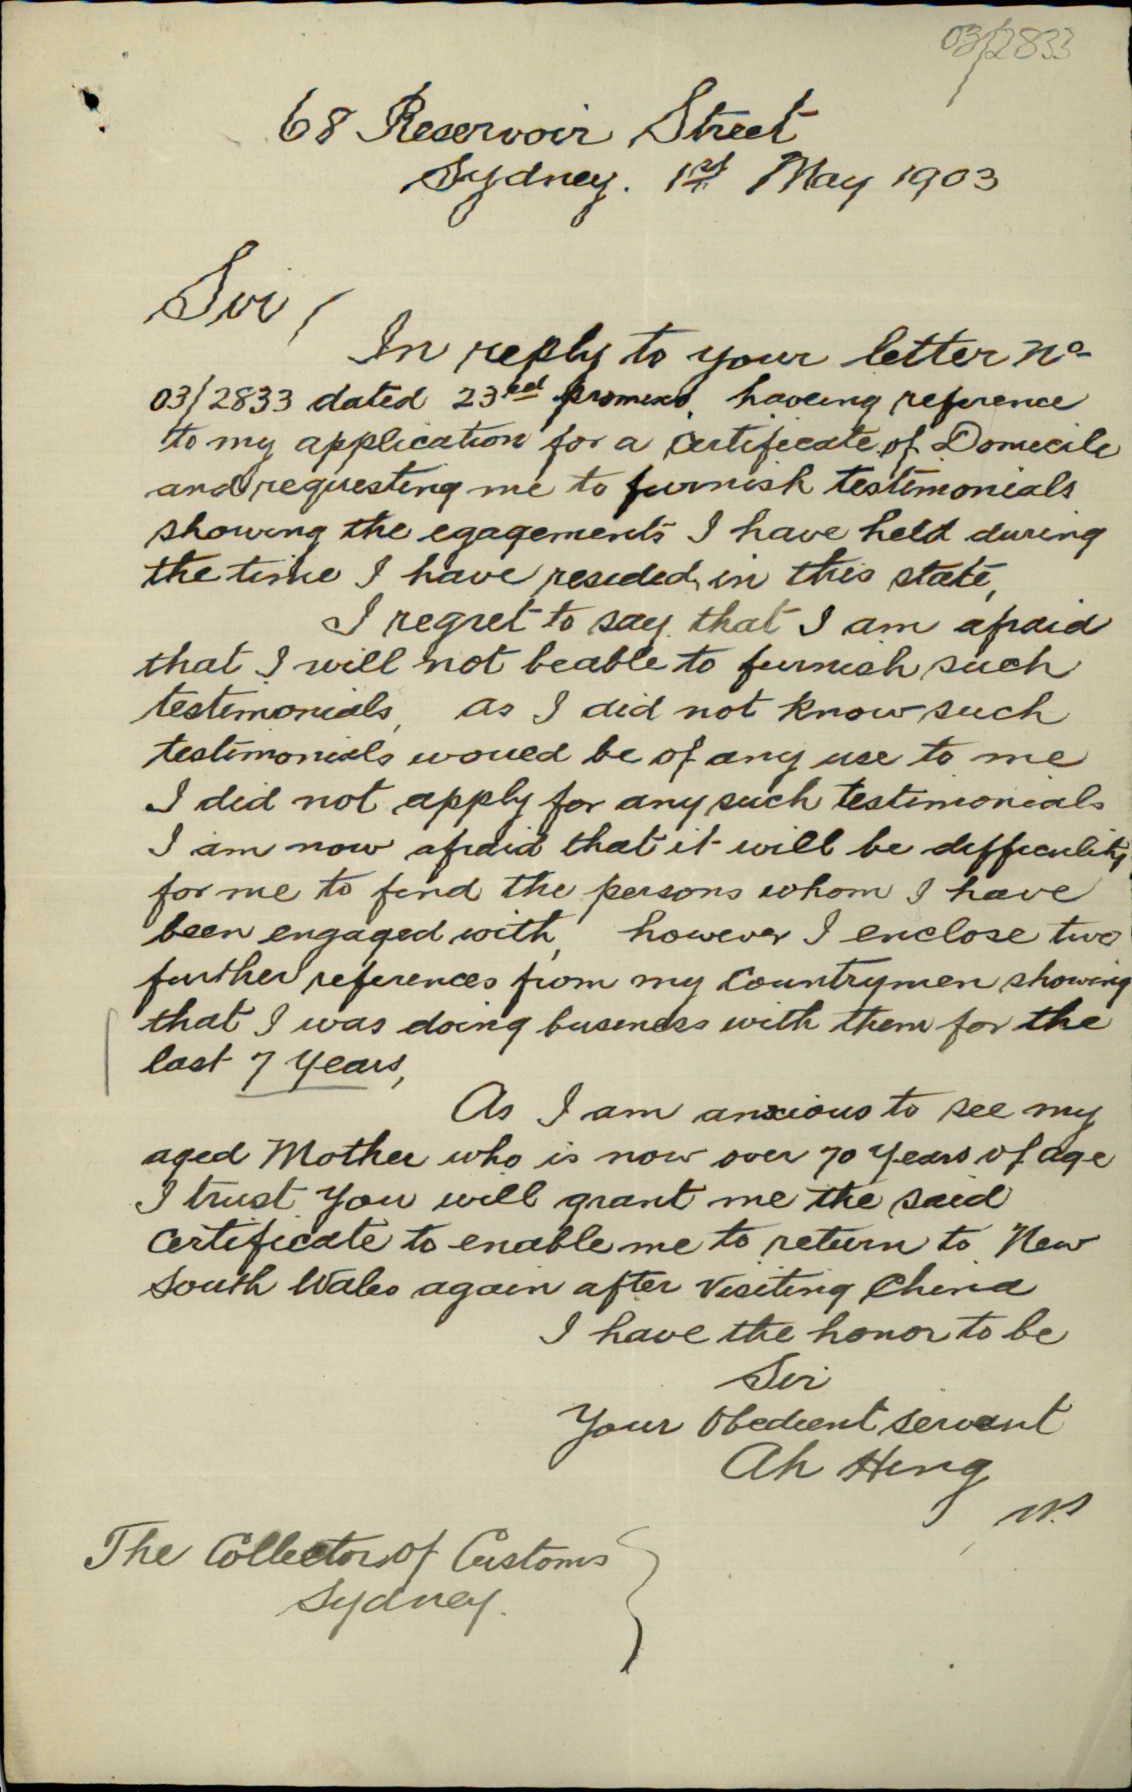 03/2833
68 Reservoir Street
Sydney. 1st May 1903
Sir/
In reply to your letter No
03/2833 dated 23rd haveing reference
to my application for a Certificate of Domicile
and requesting me to furnish testimonials
showing the egagements I have held during
the time I have resided in this state,
I regret to say that I am afraid
that I will not beable to furnish such
testimonials, as I did not know such
testimonials would be of any use to me
I did not apply for any such testimonials
I am now afraid that it will be difficulity
for me to find the persons whom I have
been engaged with, however I enclose two
further references from my Countrymen showing
that I was doing business with them for the
last 7 years,
As I am anxious to see my
aged Mother who is now over 70 years of age
I trust you will grant me the said
Certificate to enable me to return to New
South Wales again after visiting China
I have the honor to be
Sir
Your Obedient servant
Ah Hing
The Collector of Customs
Sydney.